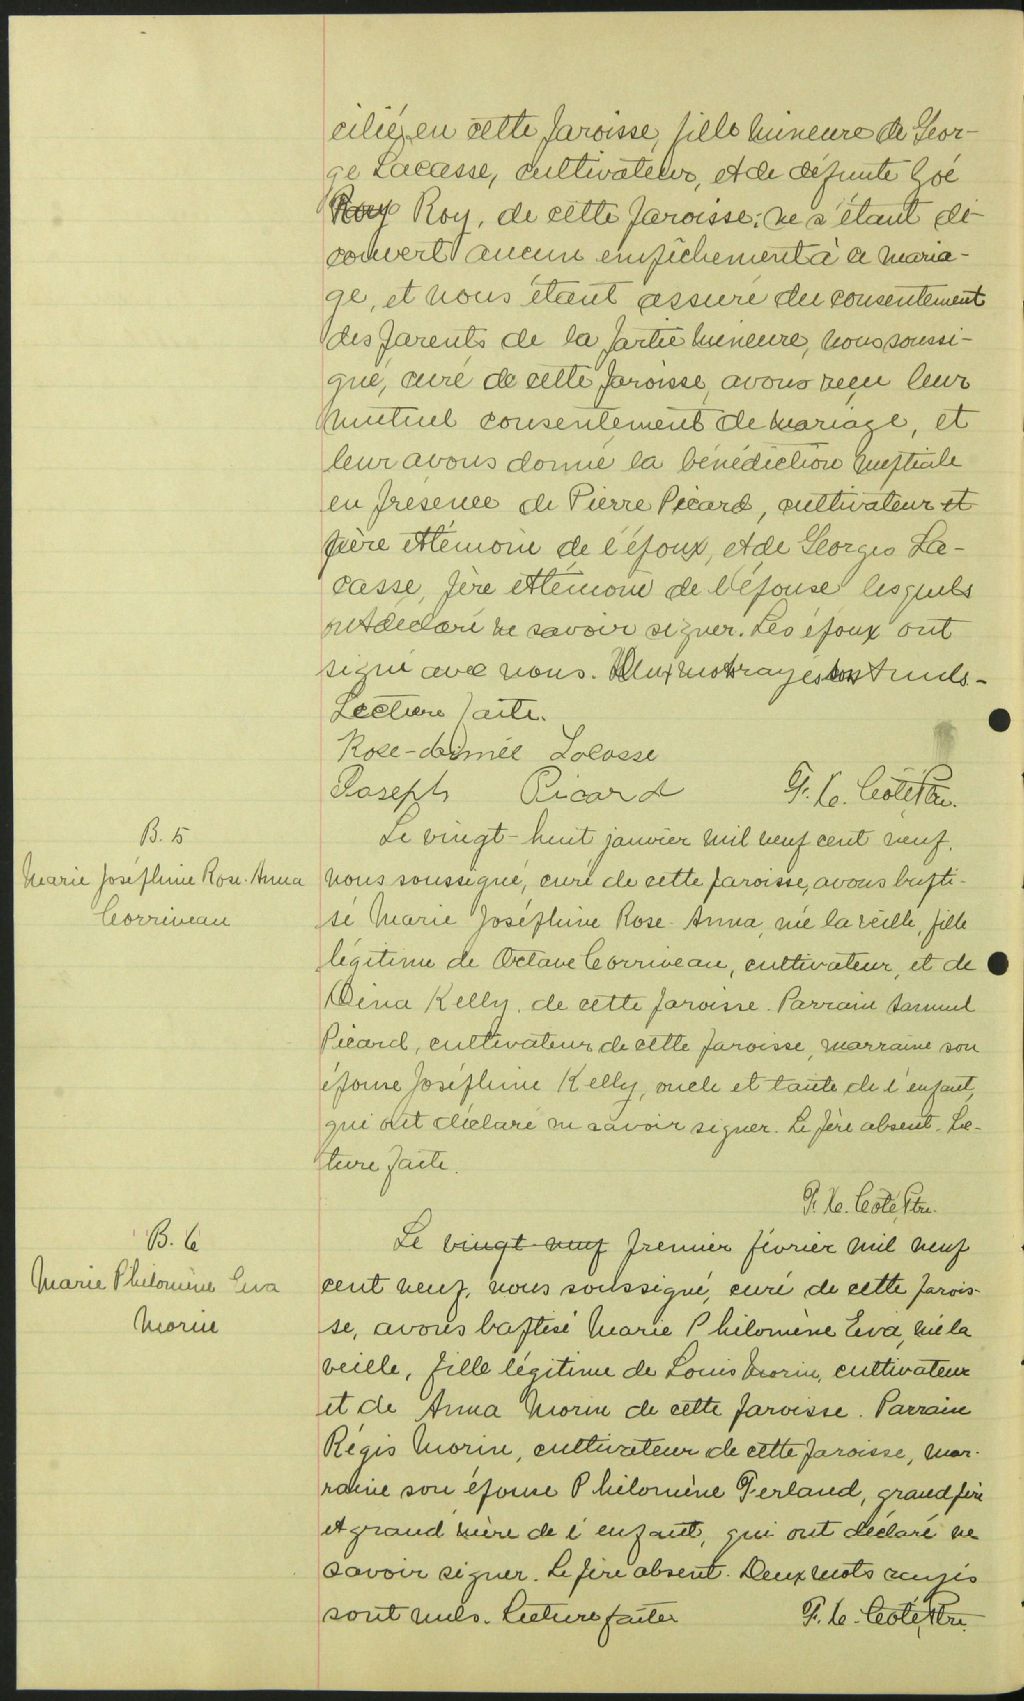 ciliée en cette paroisse, fille mineure de Geor-
ge Lacasse, cultivateur, et de défunte Zoé
Roy Roy, de cette paroisse; ne s'étant dé-
couvert aucun empêchement à ce maria-
ge, et nous étant assuré du consentement
des parents de la partie mineure, nous soussi-
gné, curé de cette paroisse, avons reçu leur
mutuel consentement de mariage, et
leur avons donné la bénédiction nuptiale
en présence de Pierre Picard, cultivateur et
père et témoin de l'époux, et de Georges La-
casse, père et témoin de l'épouse lesquels
ont déclaré ne savoir signer. Les époux ont
signé avec nous. Deux mots rayés sont nuls.-
Lecture faite.
Rose-daimée Lacasse
Joseph Picard F. X. Côté, Ptre.
B. 5
Marie Joséphine Rose-Anna
Corriveau
Le vingt-huit janvier mil neuf cent neuf,
nous soussigné, curé de cette paroisse, avons bapti-
sé Marie Joséphine Rose-Anna, née la veille, fille
légitime de Octave Corriveau, cultivateur, et de
Dina Kelly, de cette paroisse. Parrain Samuel
Picard, cultivateur de cette paroisse, marraine son
épouse Joséphine Kelly, oncle et tante de l'enfant,
qui ont déclaré ne savoir signer. Le père absent. Lec-
ture faite.
F. X. Côté, Ptre.
B. 6
Marie Philomène Eva
Morin
Le vingt-neuf premier février mil neuf
cent neuf, nous soussigné, curé de cette parois-
se, avons baptisé Marie Philomène Eva, née la
veille, fille légitime de Louis Morin, cultivateur
et de Anna Morin de cette paroisse. Parrain
Régis Morin, cultivateur de cette paroisse, mar-
raine son épouse Philomène Ferland, grand père
et grand'mère de l'enfant, qui ont déclaré ne
savoir signer. Le père absent. Deux mots rayés
sont nuls. Lecture faite. F. X. Côté, Ptre.